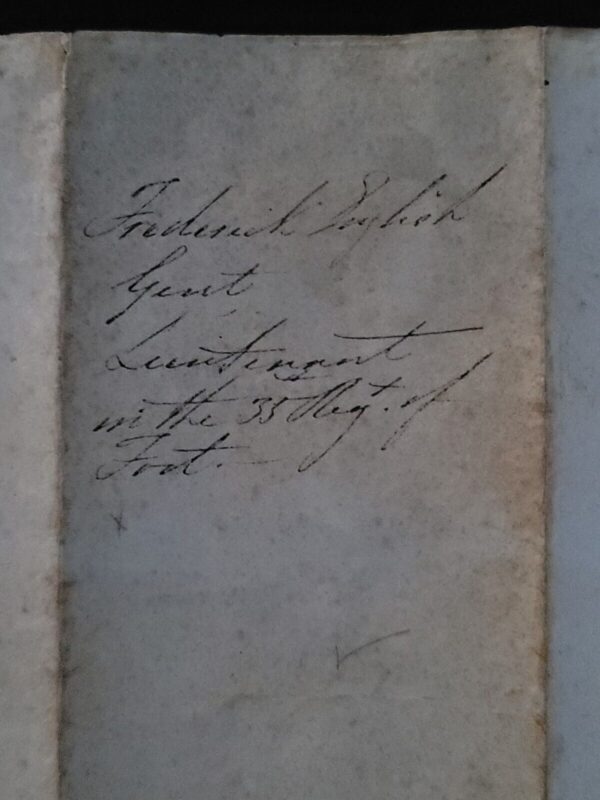 Frederick English
Gent
Lieutenant
in the 35th Regt. of
Foot.